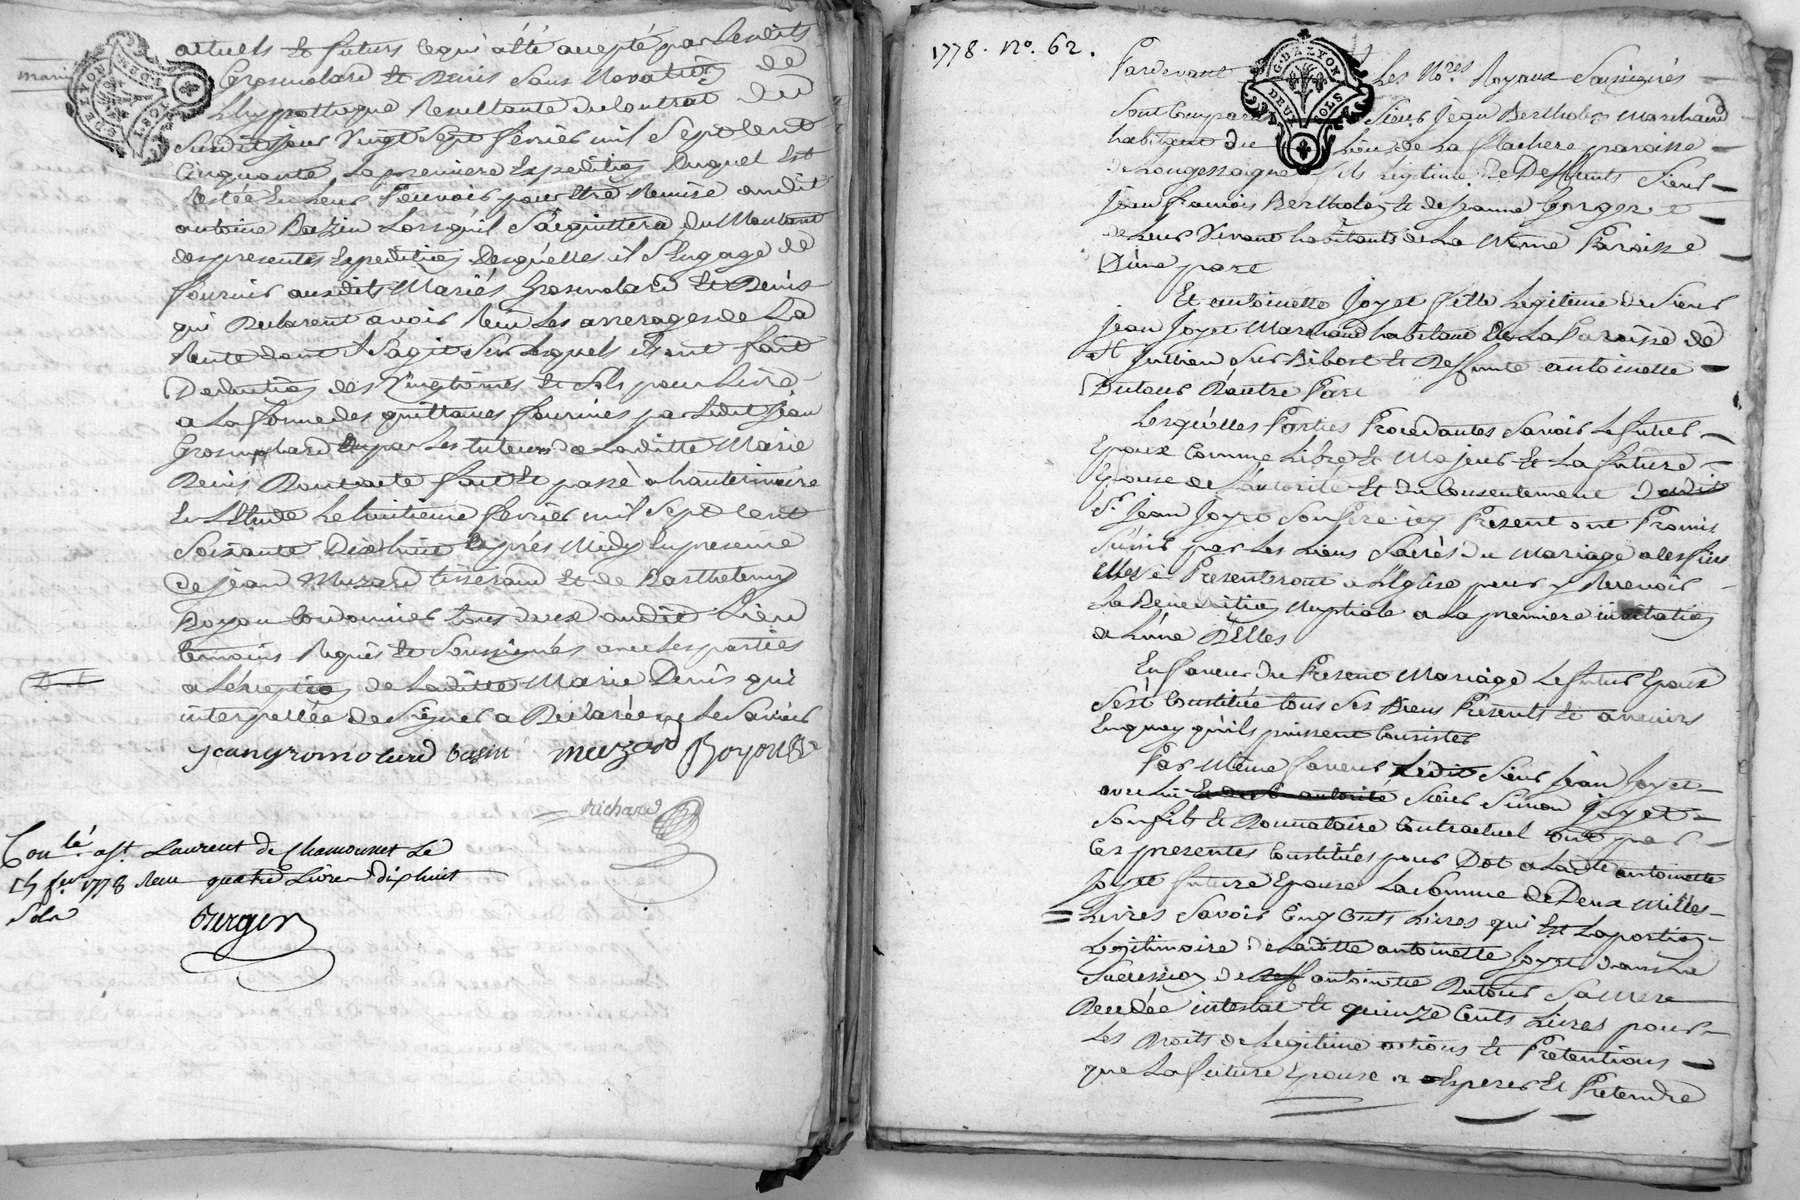 actuels et futurs ce qui a été accepté par lesdits
Grosmolard et Denis sans Novation de
L'hypotheque Resultante du Contrat du
Susdit jour Vingt sept fevrier mil Sept Cent
Cinquante, la premiere Expedition Duquel Est
Restée En leur Pouvoir pour Etre Remise audit
antoine Bazin Lorsqu'il S'acquittera du Montant
des presentes Expeditions desquelles il S'Engage de
fournir auxdits Mariés Grosmolard Et Denis
qui Declarent avoir Reçu Les arrerages de La
Rente dont il S'agit Sur lesquels ils ont fait
Deduction des Vingtiemes Et Sols pour Livre
a La forme des quittances fournies par Ledit Jean
Grosmolard par Les tuteurs de Laditte Marie
Denis Dont acte fait Et passé a hauterivoire
En L'Etude Le huitieme fevrier mil Sept Cent
Soixante Dix huit aprés Midy En presence
de Jean Muzard tisserand Et de Barthelemy
Royon Cordonnier tous deux audit Lieu
temoins Requis Et Soussignés avec Les parties
a L'exception de Laditte Marie Denis qui
interpellée de Signer a Declarée ne Le Savoir
jean gromolard bazin muzard Royon
Richard
Con.lé a St. Laurent de Chamousset Le
15 fev. 1778 Reçu quatre Livres dix huit
Sols
Berger
1778. N.º 62.
G. D. LYON
DEUX SOLS
Pardevant Les No.res Royaux Soussignés
Sont Comparu Sieur Jean Bertholon Marchand
habitant du Lieu de La flachere paroisse
de Longessaigne fils Legitime de Deffunts Sieur
Jean francois Bertholon Et de Jeanne
de Leur Vivant habitants de La Même Paroisse
D'une part
Et antoinette Joyet fille Legitime de Sieur
Jean Joyet Marchand habitant de La Paroisse de
St Jullien Sur Bibost Et de Deffunte antoinette
Dutour D'autre Part
Lesquelles Parties Procedantes Savoir Le futur
Epoux Comme Libre Et Majeur Et La future
Epouse de L'autorité Et du Consentement dudit
Sr. Jean Joyet Son Pere icy Present ont Promis
S'unir par Les Liens Sacrés du Mariage a Ces fins
Elles Se Presenteront a L'Eglise pour y Recevoir
La Benediction Nuptiale a La premiere invitation
de L'une D'Elles
En faveur du Present Mariage Le futur Epoux
S'est Constitué tous Ses Biens Presents Et avenirs
En quoy qu'ils puissent Consister
Par Même faveur Ledit Sieur Jean Joyet
avec Lui Sieur Simon Joyet
Son fils Et Donnataire Contractuel ont par
Ces presentes Constitués pour Dot a Lad.te antoinette
Joyet future Epouse La Somme de Deux Milles
Livres Savoir Cinq Cents Livres qui Est La portion
Legitimaire de Laditte antoinette Joyet dans La
Succession de antoinette Dutour Sa Mere
Decedée intestat Et quinze Cents Livres pour
Les Droits de Legitime actions Et Pretentions
que La future Epouse a Esperer Et Pretendre